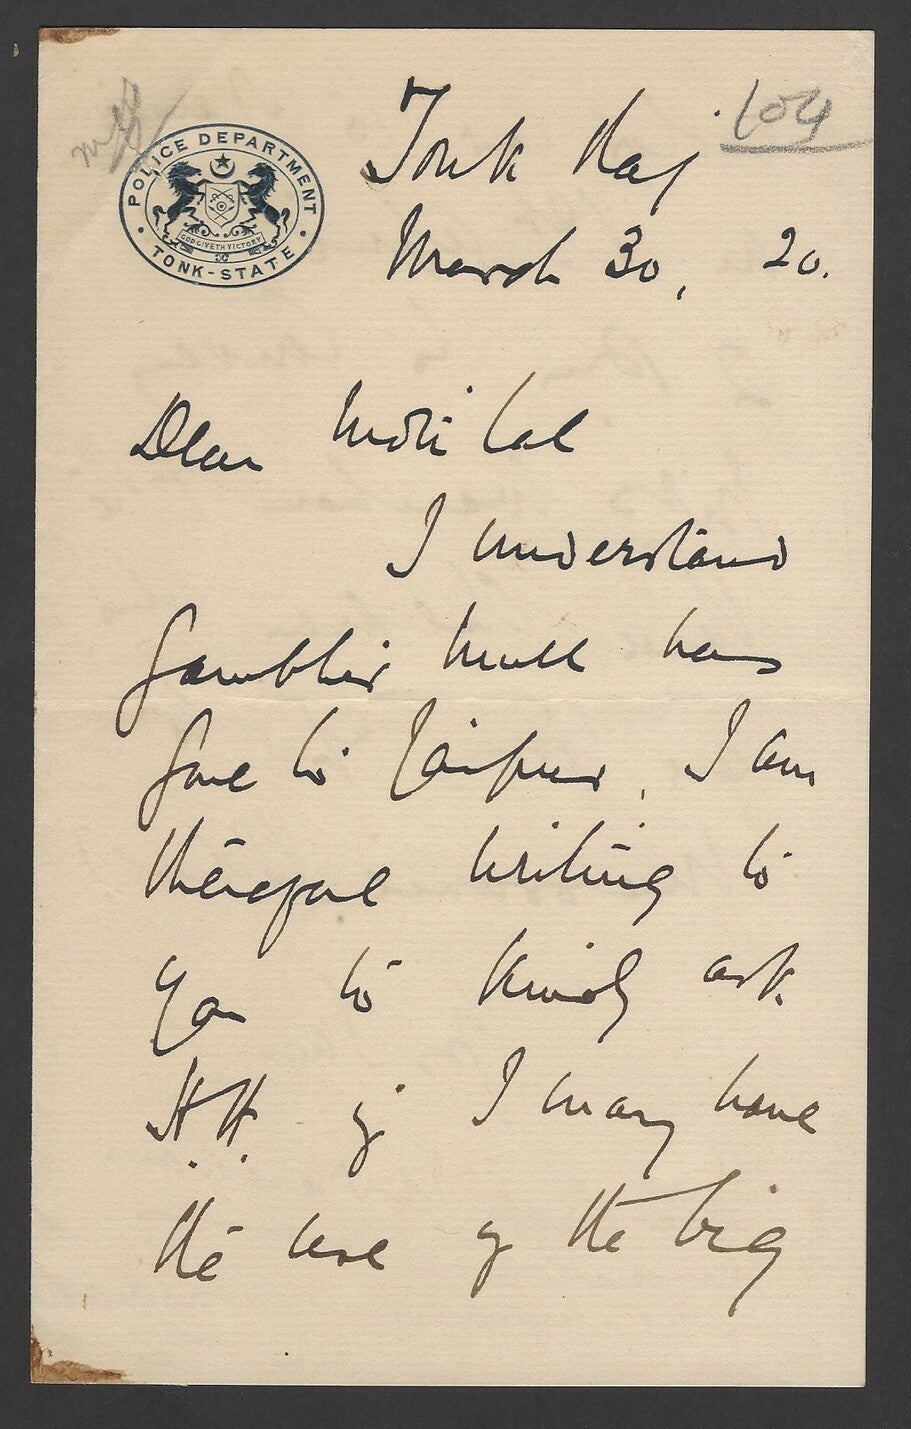 104
POLICE DEPARTMENT
GOD GIVETH VICTORY
TONK-STATE
Tonk Raj
March 30, 20.
Dear Moti Lal
I understand
Gambhir Mull has
gone to Jaipur, I am
therefore writing to
you to kindly ask
H.H. if I may have
the use of the big